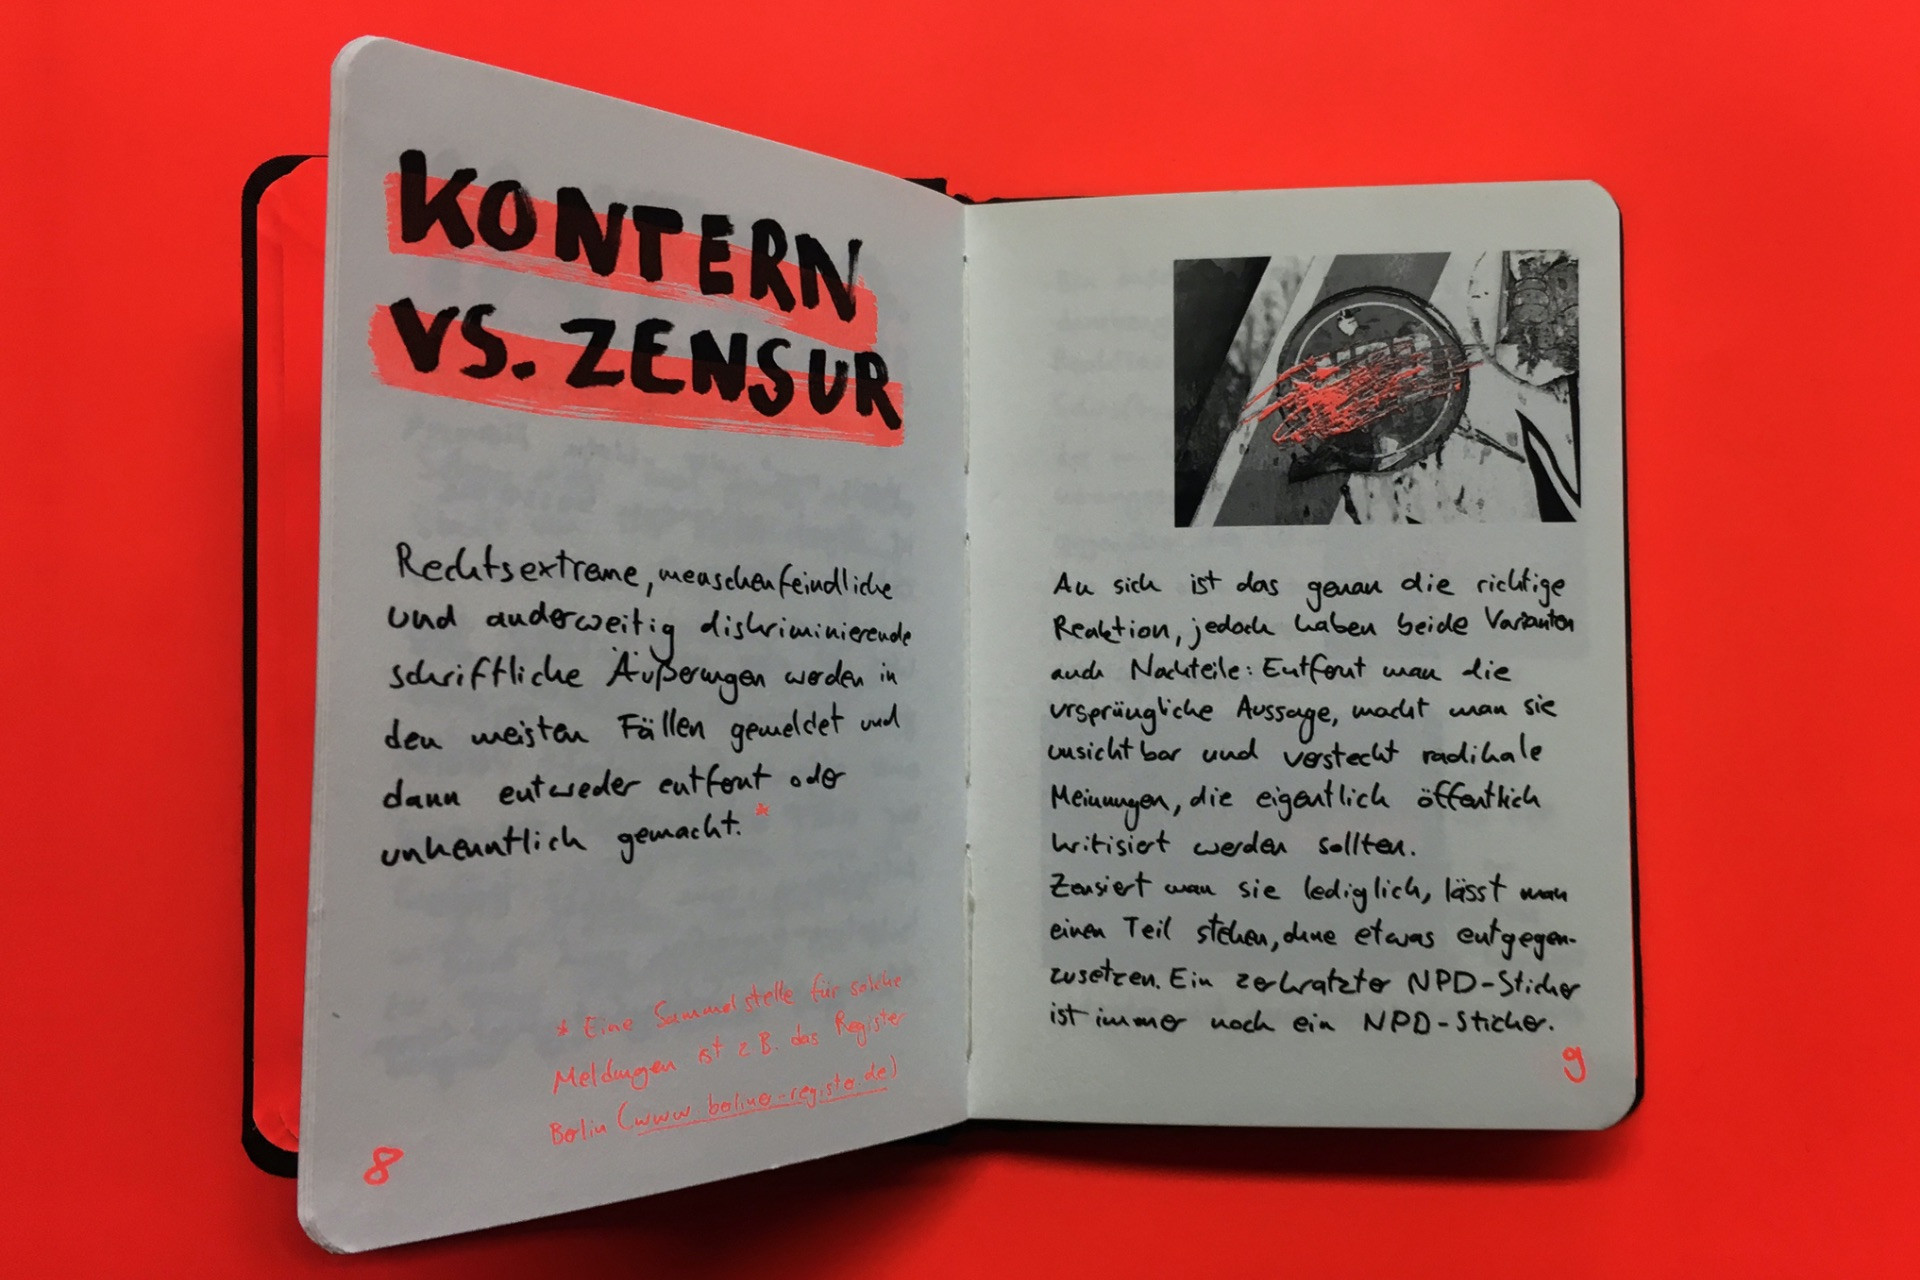 KONTERN
VS. ZENSUR
Rechtsextreme, menschenfeindliche
und anderweitig diskriminierende
schriftliche Äußerungen werden in
den meisten Fällen gemeldet und
dann entweder entfernt oder
unkenntlich gemacht.*
* Eine Sammelstelle für solche
Meldungen ist z.B. das Register
Berlin (www.berliner-register.de)
8
An sich ist das genau die richtige
Reaktion, jedoch haben beide Varianten
auch Nachteile: Entfernt man die
ursprüngliche Aussage, macht man sie
unsichtbar und versteckt radikale
Meinungen, die eigentlich öffentlich
kritisiert werden sollten.
Zensiert man sie lediglich, lässt man
einen Teil stehen, ohne etwas entgegen-
zusetzen. Ein zerkratzter NPD-Sticker
ist immer noch ein NPD-Sticker.
9